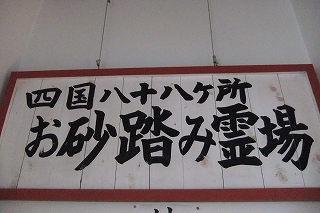 四国八十八ヶ所
お砂踏み霊場